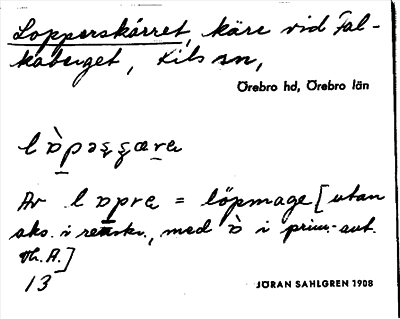 Lopperskärret, käre vid Fal-
kaberget, Kils sn,
Örebro hd, Örebro län
l ɒ̀pəʂʂæra
Av l ɒpra = löpmage [utan
aks. i renskr., med ɒ̀ i prim.-aut.
Vh. A.]
13
JÖRAN SAHLGREN 1908